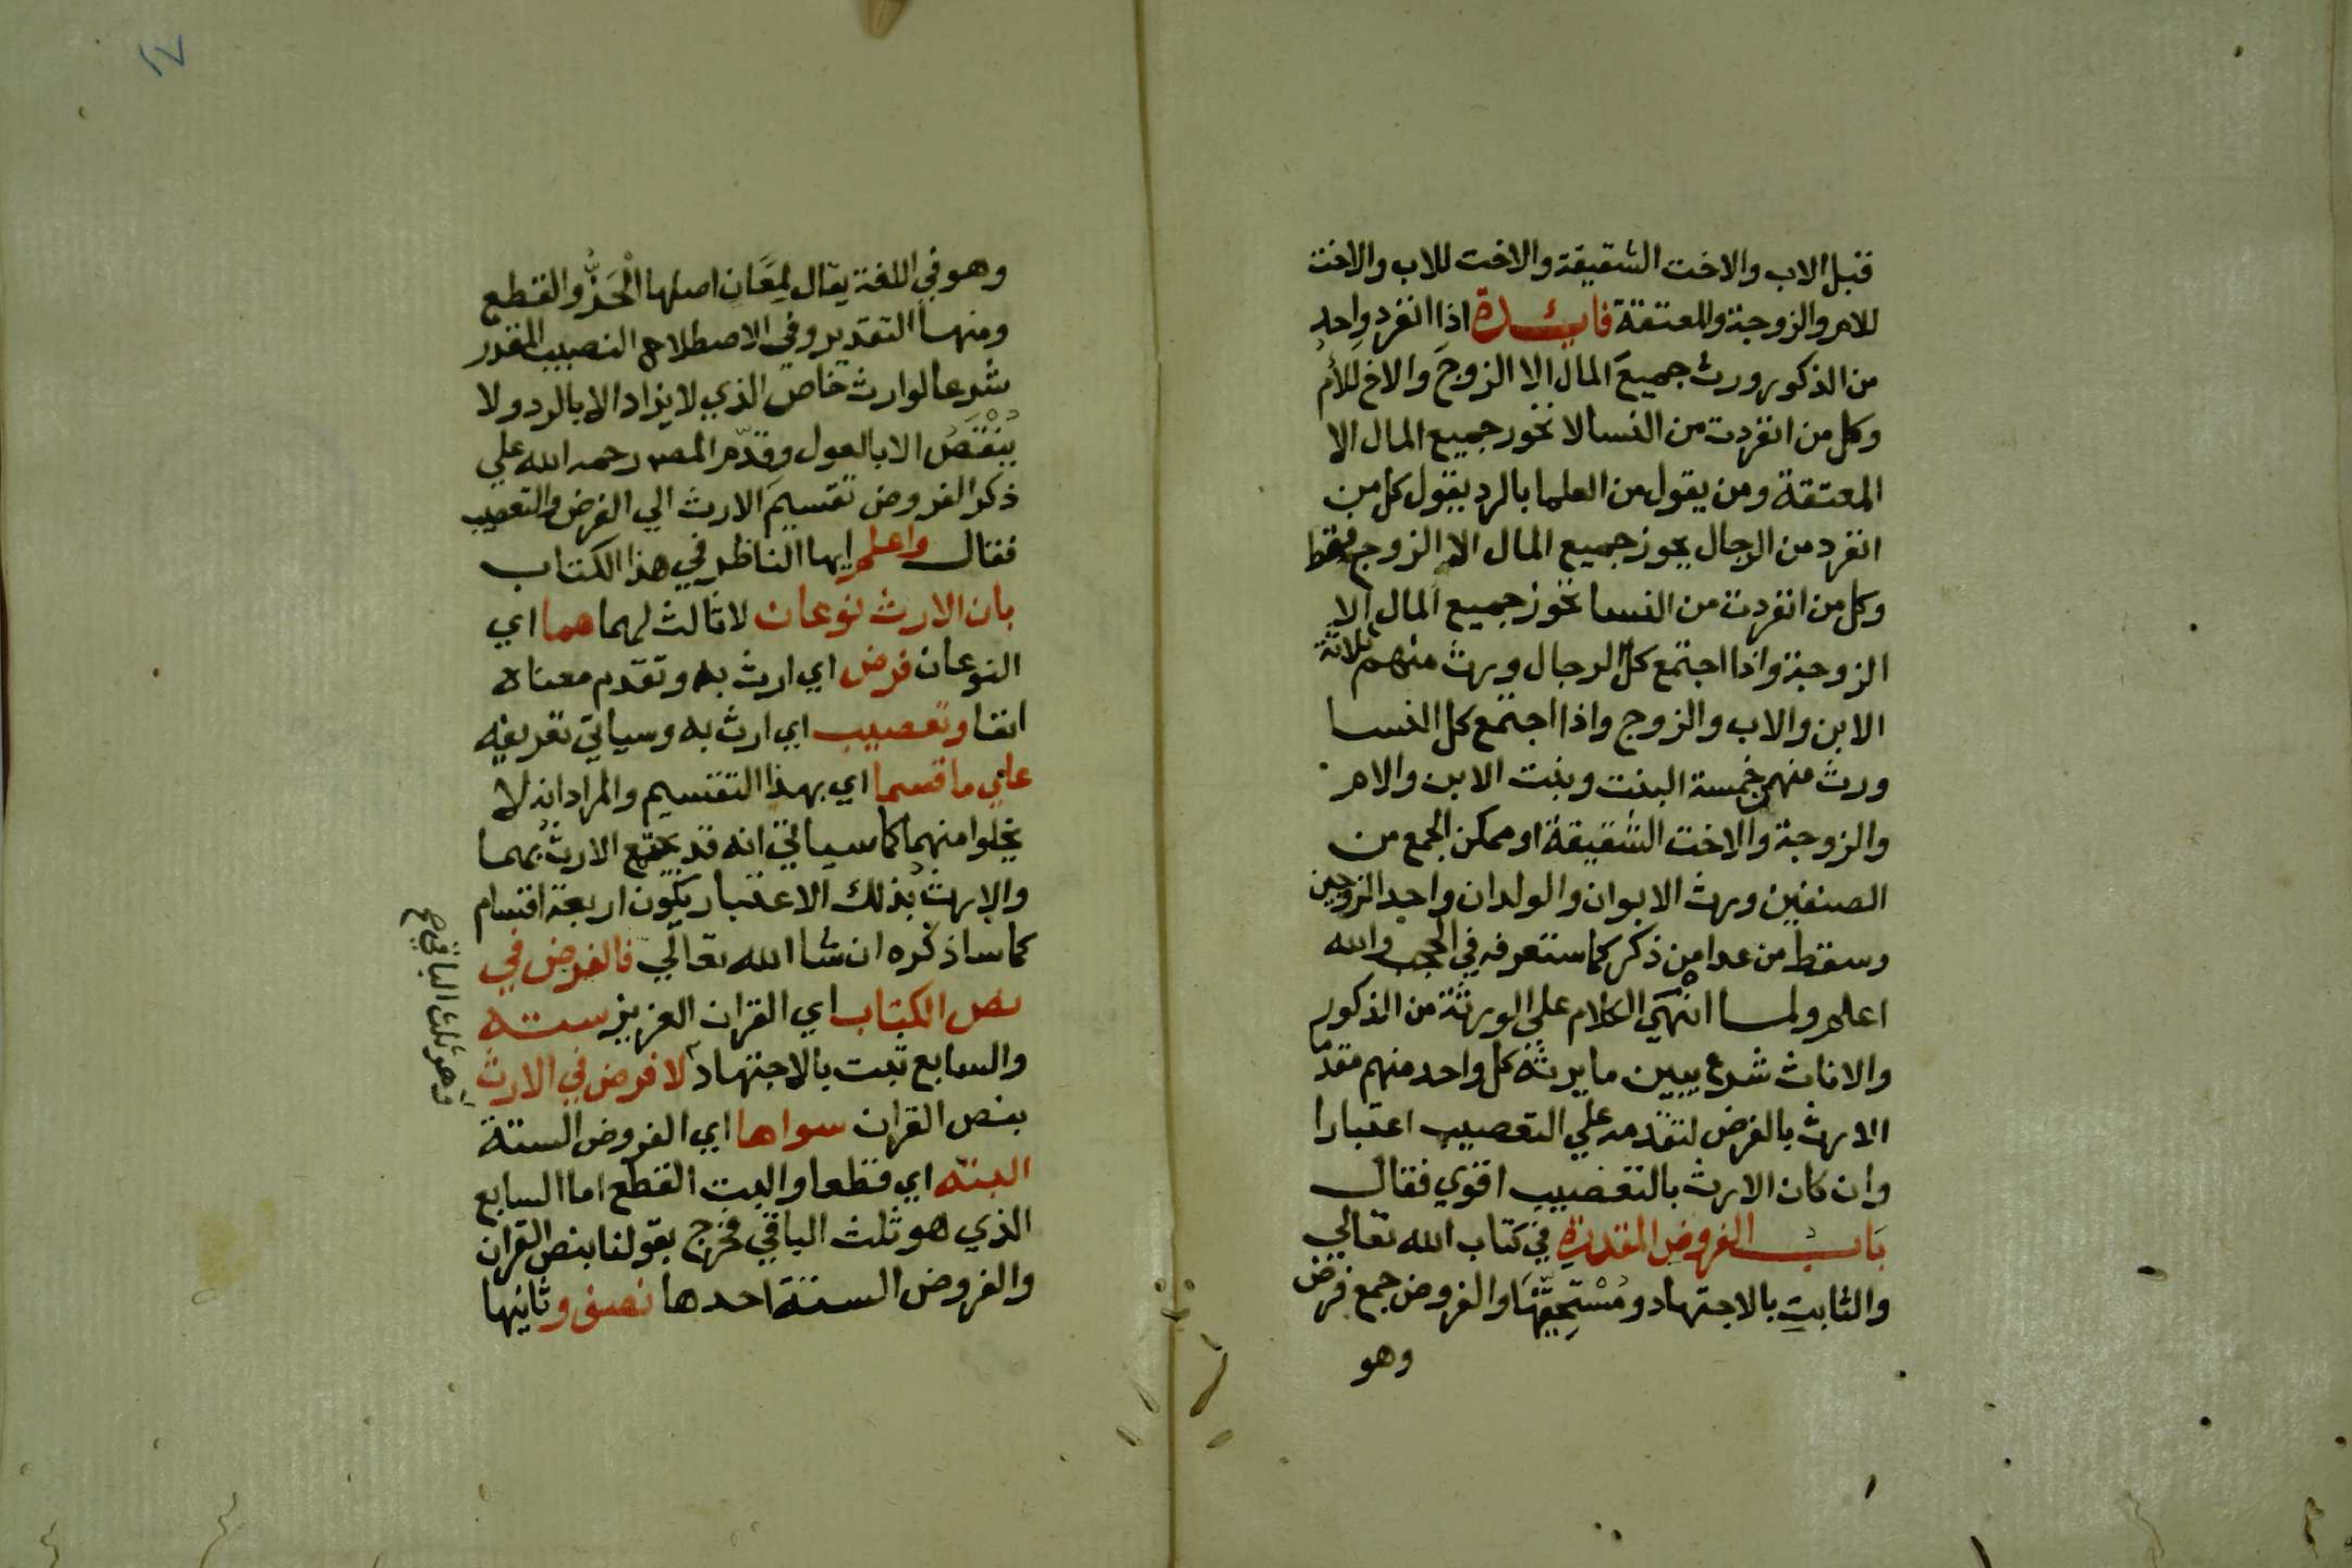 قبل الاب والاخت الشقيقة والاخت للاب والاخت
للام والزوجة والمعتقة فايدة اذا انفرد واحد
من الذكور ورث جميع المال الا الزوج والاخ للأم
وكل من انفردت من النسا لا تحوز جميع المال الا
المعتقة ومن يقول من العلما بالرد يقول كل من
انفرد من الرجال يحوز جميع المال الا الزوج فقط
وكل من انفردت من النسا تحوز جميع المال الا
الزوجة واذا اجتمع كل الرجال ورث منهم ثلاثة
الابن والاب والزوج واذا اجتمع كل النسا
ورث منهن خمسة البنت وبنت الابن والام
والزوجة والاخت الشقيقة او ممكن الجمع من
الصنفين ورث الابوان والولدان واحد الزوجين
وسقط من عدا من ذكر كما ستعرفه في الحجب والله
اعلم ولما انهى الكلام علي الورثة من الذكور
والاناث شرع يبين ما يرثه كل واحد منهم مقدما
الارث بالفرض لتقدمه علي التعصيب اعتبارا
وان كان الارث بالتعصيب اقوي فقال
بَاب الفروض المقدرة في كتاب الله تعالي
والثابتِ بالاجتهاد ومُسْتَحِقِّيْهَا والفروض جمع فرض
وهو
١٧
وهو في اللغة يقال لِمَعَانٍ اصلها الْحَزُّ والقطع
ومنها التقدير وفي الاصطلاح النصيب المقدر
شرعا لوارث خاص الذي لا يزاد الا بالرد ولا
يُنْقَصُ الا بالعول وقدّم المص رحمه الله علي
ذكر الفروض تقسيمَ الارث الي الفرض والتعصيب
فقال واعلم ايها الناظر في هذا الكتاب
بان الارث نوعان لا ثالث لهما هما اي
النوعان فرض اي ارث به وتقدم معناه
انفا وتعصيب اي ارث به وسياتي تعريفه
علي ما قسما اي بهذا التقسيم والمراد انه لا
يخلوا منهما كما سياتي انه قد يجتمع الارث بهما
والارث بذلك الاعتبار يكون اربعة اقسام
كما ساذكره ان شا الله تعالي فالفرض في
نص الكتاب اي القران العزيز سته
والسابع ثبت بالاجتهاد لا فرض في الارث
وهو ثلث الباقي صح
بنص القران سواها اي الفروض الستة
البته اي قطعا والبت القطع اما السابع
الذي هو ثلث الباقي فخرج بقولنا بنص القران
والفروض الستة احدها نصف وثانيها